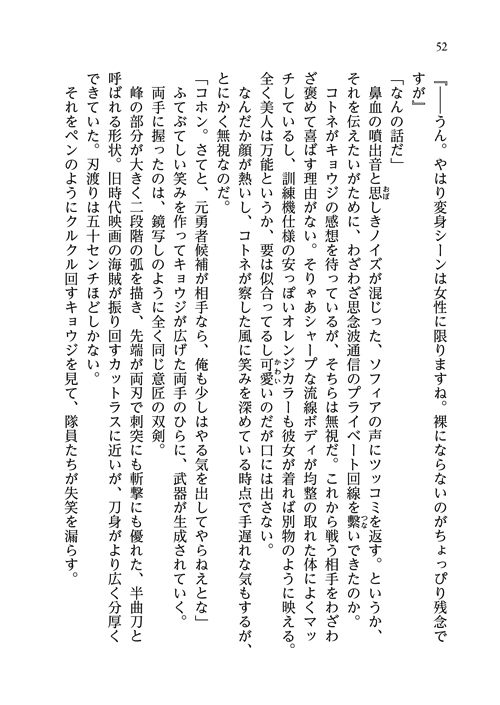 52
『――うん。やはり変身シーンは女性に限りますね。裸にならないのがちょっぴり残念で
すが』
「なんの話だ」
鼻血の噴出音と思しきノイズが混じった、ソフィアの声にツッコミを返す。というか、
それを伝えたいがために、わざわざ思念波通信のプライベート回線を繋いできたのか。
コトネがキョウジの感想を待っているが、そちらは無視だ。これから戦う相手をわざわ
ざ褒めて喜ばす理由がない。そりゃあシャープな流線ボディが均整の取れた体によくマッ
チしているし、訓練機仕様の安っぽいオレンジカラーも彼女が着れば別物のように映える。
全く美人は万能というか、要は似合ってるし可愛いのだが口には出さない。
なんだか顔が熱いし、コトネが察した風に笑みを深めている時点で手遅れな気もするが、
とにかく無視なのだ。
「コホン。さてと、元勇者候補が相手なら、俺も少しはやる気を出してやらねえとな」
ふてぶてしい笑みを作ってキョウジが広げた両手のひらに、武器が生成されていく。
両手に握ったのは、鏡写しのように全く同じ意匠の双剣。
峰の部分が大きく二段階の弧を描き、先端が両刃で刺突にも斬撃にも優れた、半曲刀と
呼ばれる形状。旧時代映画の海賊が振り回すカットラスに近いが、刀身がより広く分厚く
できていた。刃渡りは五十センチほどしかない。
それをペンのようにクルクル回すキョウジを見て、隊員たちが失笑を漏らす。